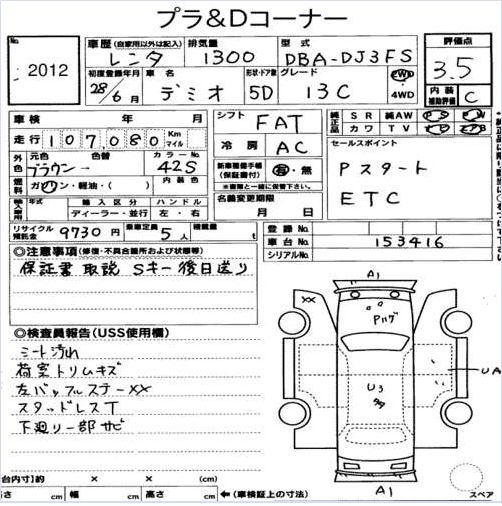 プラ&Dコーナー
No.
2012
車歴(自家用以外は記入)
レンタ
排気量
1300
型式
DBA-DJ3FS
評価点
3.5
初度登録年月
28年
6月
車名
デミオ
形状・ドア数
5D
グレード
13C
2WD
4WD
内装補助評価
C
車検 年 月
走行 107,080 Km マイル
シフト
FAT
冷房
AC
純正品 SR 純正AW PS PW
カワ TV ナビ エアB
外色
元色 色替 カラーNo.
ブラウン 42S
燃料
ガソリン・軽油・( )
内装色
新車整備手帳(保証書付)
有・無
※書類と一緒に保管下さい。
名義変更期限
月 日
セールスポイント
Pスタート
ETC
輸入車用
年式
輸入区分
ディーラー・並行
ハンドル
左・右
リサイクル預託金
9730円
乗車定員
5人
積載量
t
登録No.
車台No.
153416
シリアルNo.
◎注意事項(修復・不具合箇所および状態等)
保証書 取説 Sキー 後日送り
◎検査員報告(USS使用欄)
シート汚れ
荷室トリムキズ
左バッフルステーXX
スタッドレスT
下廻り一部サビ
A1
XX
Pハゲ
U3
UA
A1
台内寸)約 × × (cm)
長さ cm 幅 cm 高さ cm
←(車検証上の寸法)
スペア